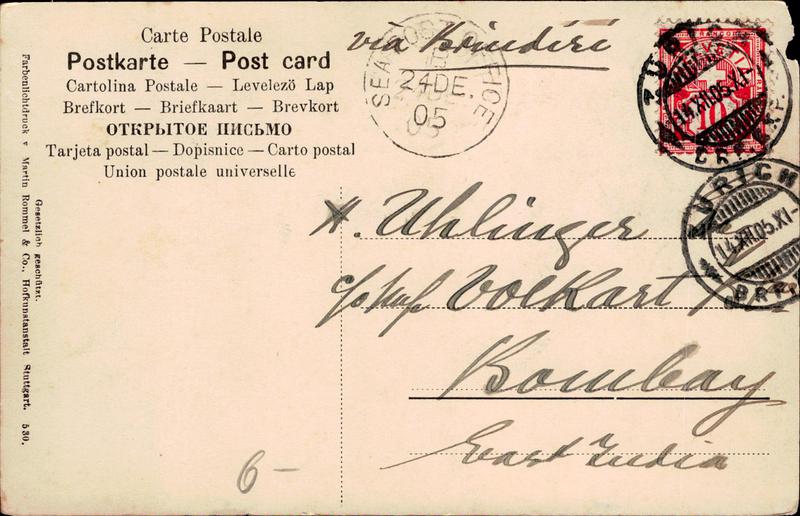 Carte Postale
Postkarte — Post card
Cartolina Postale — Levelező Lap
Brefkort — Briefkaart — Brevkort
ОТКРЫТОЕ ПИСЬМО
Tarjeta postal — Dopisnice — Carto postal
Union postale universelle
via Brindisi
SEA POST OFFICE
24 DE.
05
HELVETIA
10
ZÜRICH
14.XII.05.XI-
BRF
ZÜRICH
14.XII.05.XI-
BRF
A. Uhlinger
Volkart
Bombay
East India
6 –
Gesetzlich geschützt.
Farbenlichtdruck v. Martin Rommel & Co., Hofkunstanstalt Stuttgart. 530.